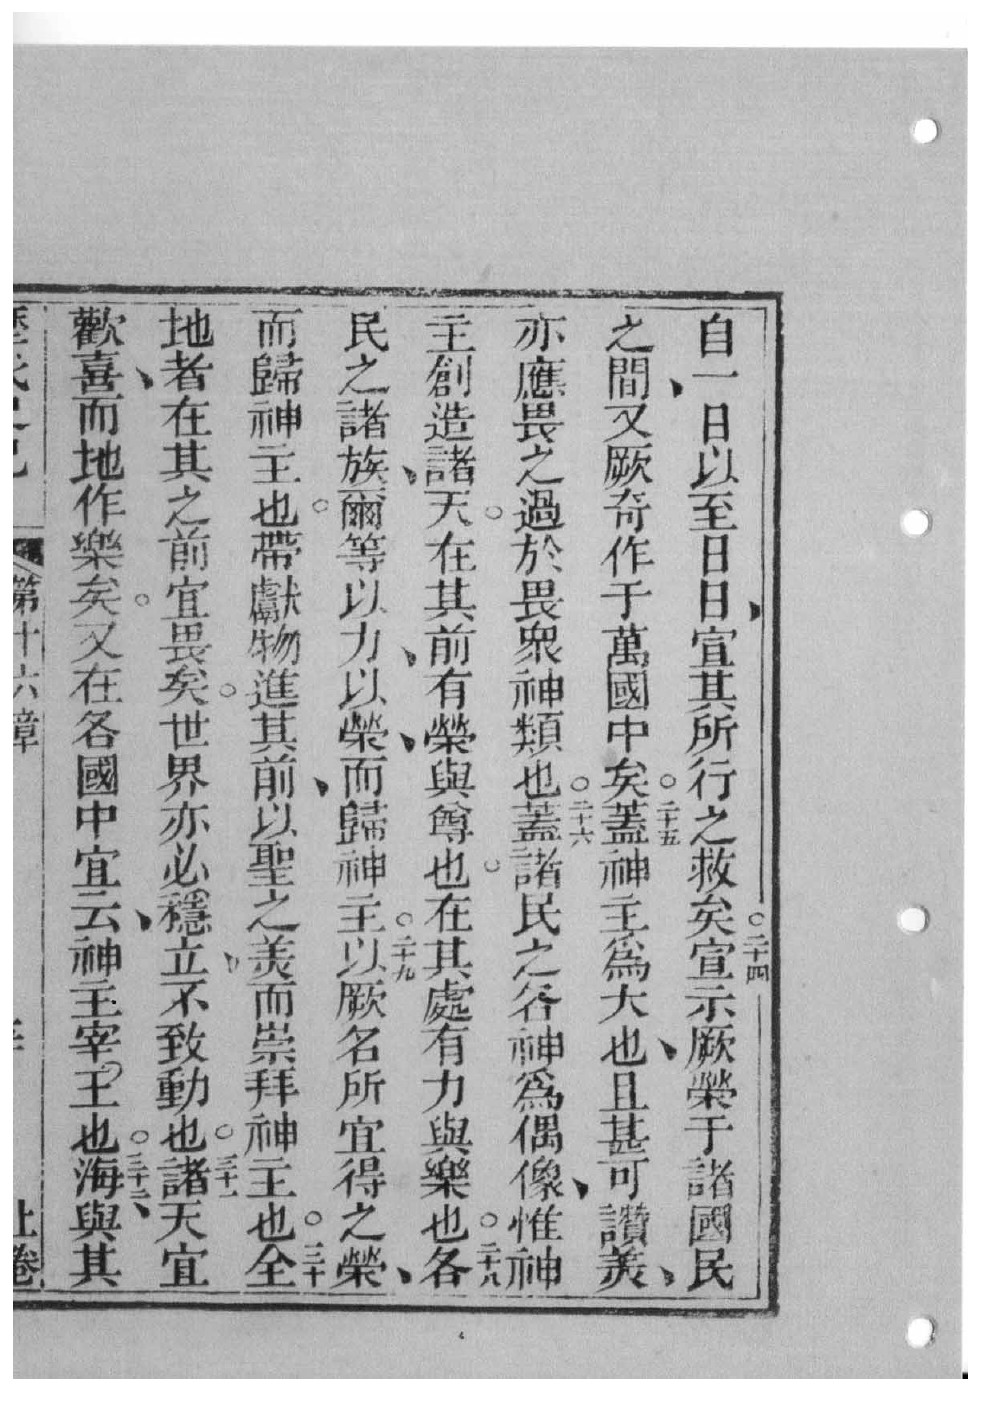 自一日以至日日、宣其所行之救矣。二十四宣示厥榮于諸國民
之間、又厥奇作于萬國中矣。二十五蓋神主爲大也、且甚可讚羙、
亦應畏之過於畏衆神類也。二十六蓋諸民之各神爲偶像、惟神
主創造諸天。在其前有榮與尊也。在其處有力與樂也。二十八各
民之諸族、爾等以力、以榮、而歸神主。二十九以厥名所宜得之榮、
而歸神主也。帶獻物進其前、以聖之羙而崇拜神主也。三十全
地者在其之前宜畏矣。世界亦必穩立、不致動也。三十一諸天宜
歡喜、而地作樂矣。又在各國中宜云、神主宰王也。三十二海與其、
歷代史記 第十六章 上卷